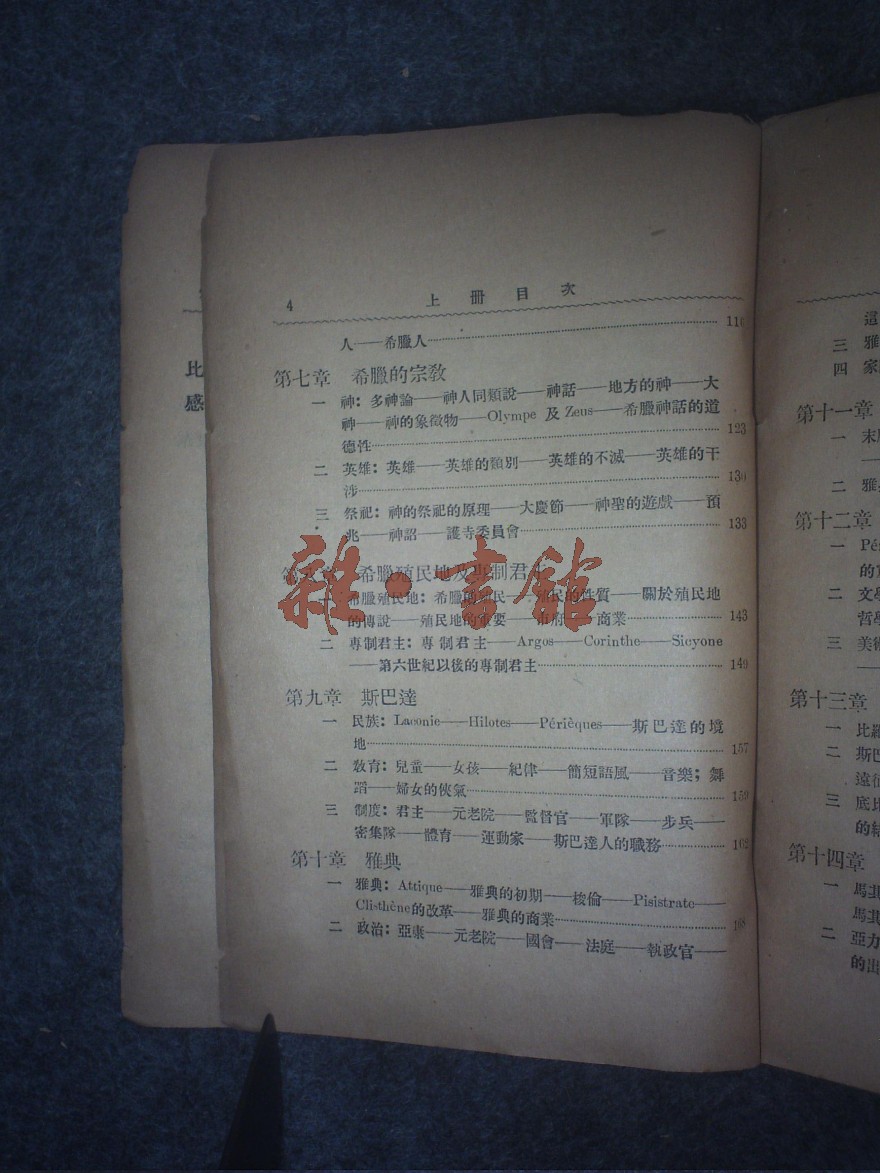 4 上冊目次
人——希臘人 116
第七章 希臘的宗教
一 神：多神論——神人同類說——神話——地方的神——大
神——神的象徵物——Olympe 及 Zeus——希臘神話的道
德性 123
二 英雄：英雄——英雄的類別——英雄的不滅——英雄的干
涉 130
三 祭祀：神的祭祀的原理——大慶節——神聖的遊戲——預
兆——神詔——護寺委員會 133
第八章 希臘殖民地及專制君主
一 希臘殖民地：希臘的殖民——殖民的性質——關於殖民地
的傳說——殖民地的重要——市府——商業 143
二 專制君主：專制君主——Argos——Corinthe——Sicyone
——第六世紀以後的專制君主 149
第九章 斯巴達
一 民族：Laconie——Hilotes——Périèques——斯巴達的境
地 157
二 教育：兒童——女孩——紀律——簡短語風——音樂；舞
蹈——婦女的俠氣 159
三 制度：君主——元老院——監督官——軍隊——步兵——
密集隊——體育——運動家——斯巴達人的職務 162
第十章 雅典
一 雅典：Attique——雅典的初期——梭倫——Pisistrate——
Clisthène的改革——雅典的商業 168
二 政治：亞 ——元老院——國會——法庭——執政官——
比
感
這
三 雅
四 家
第十一章
一 末
二 雅
第十二章
一 Pé
的
二 文學
哲學
三 美術
第十三章
一 比羅
二 斯巴
遠征
三 底比
的結
第十四章
一 馬其
馬其
二 亞力
的出
雜·書館